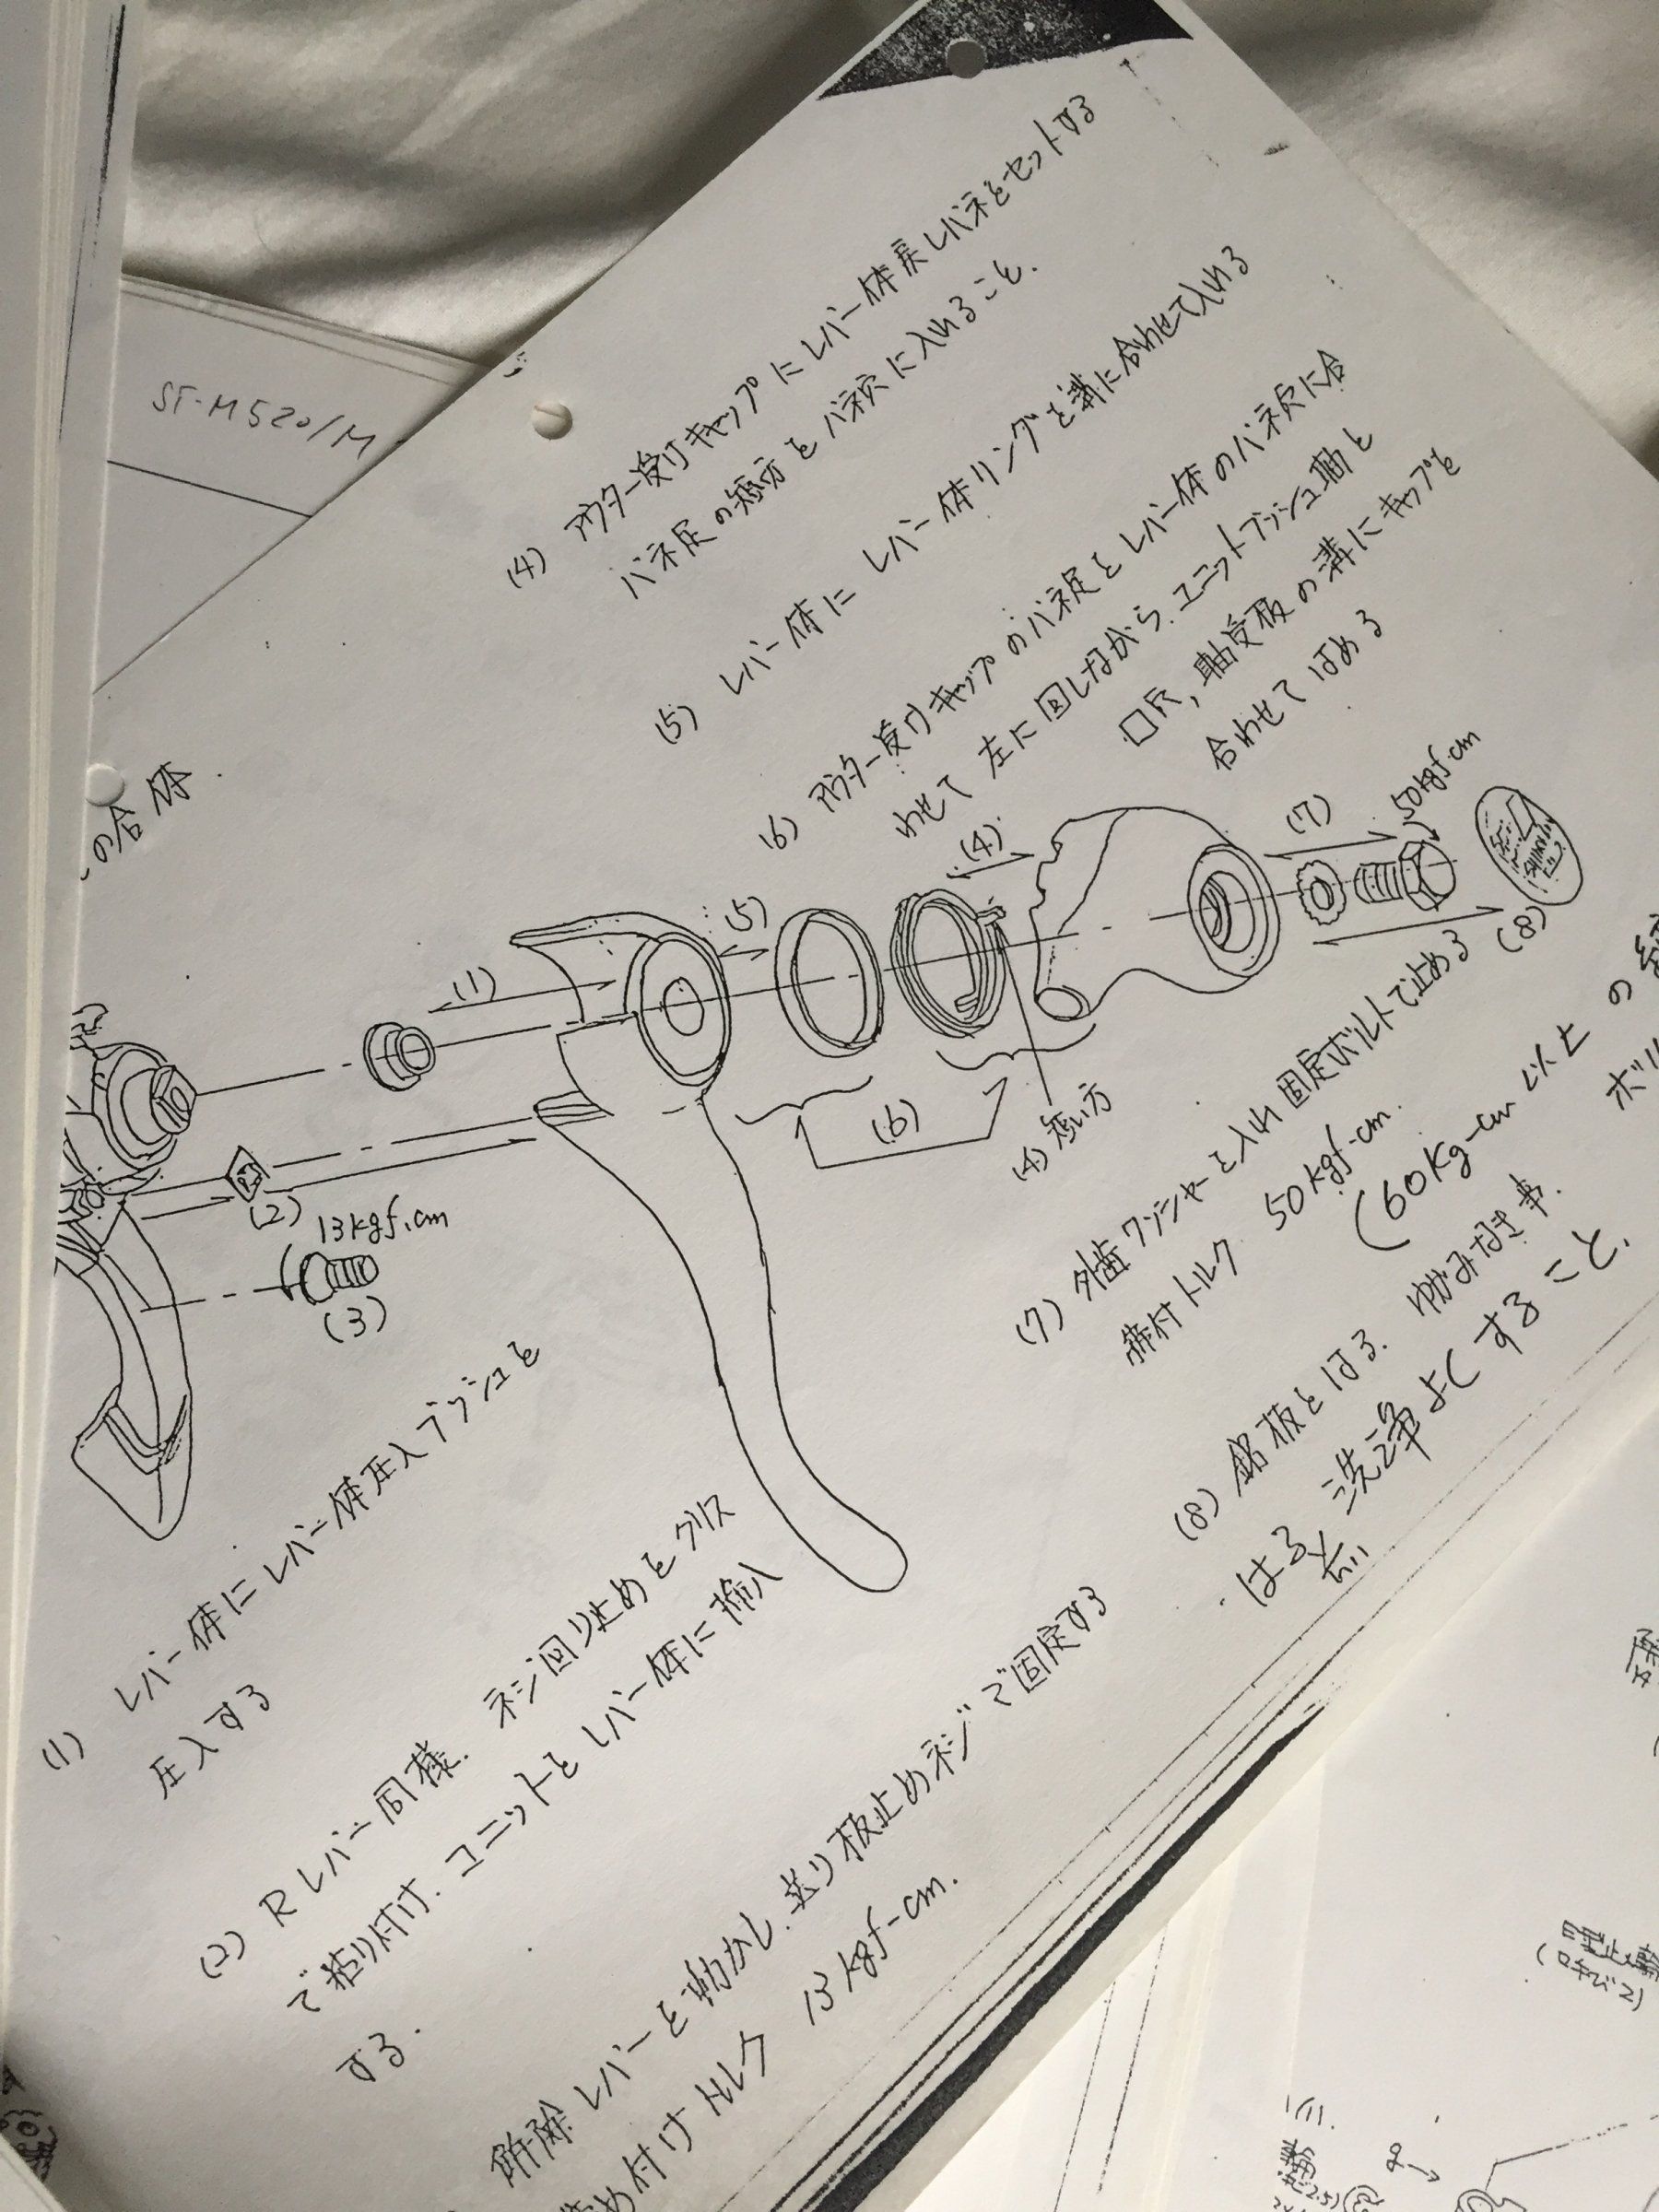 ST-M520/M
の合体
(1) レバー体にレバー体圧入ブッシュを
圧入する
(2) Rレバー同様、ネジ回り止めをグリス
で粘り付け、ユニットをレバー体に挿入
する.
解除レバーを動かし、送り板止めネジで固定する
付けトルク 13kgf-cm.
(4) アウター受けキャップにレバー体戻しバネをセットする
バネ足の短い方をバネ穴に入れること.
(5) レバー体にレバー体リングを溝に合わせて入れる
(6) アウター受けキャップのバネ足をレバー体のバネ穴に合
わせて左に回しながら、ユニットブッシュ軸と
口穴, 軸受板の溝にキャップを
合わせてはめる
(1)
(5)
(4)
(7)
50kgf-cm
(8)
(6)
(4)短い方
(2)
13kgf.cm
(3)
(7) 外歯ワッシャーを入れ固定ボルトで止める
締付トルク 50kgf-cm.
(60kg-cm以上の
ボル
(8) 銘板をはる. ゆがみなき事.
はる前 洗浄よくすること.
(呼び2)